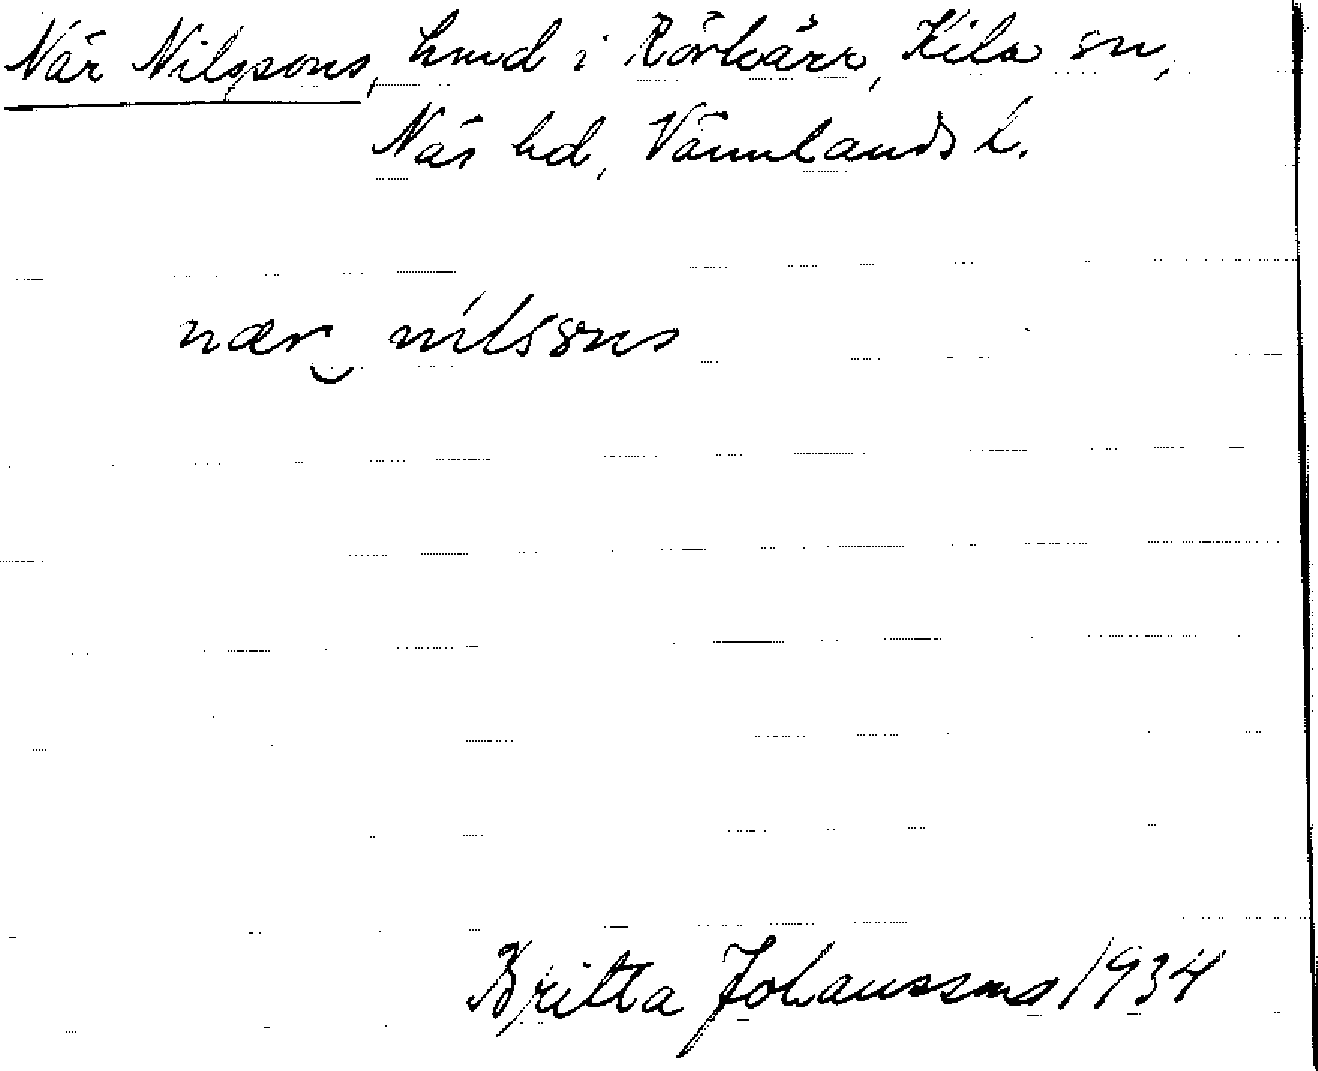 När Nilssons, hmd i Rörkärr, Kila sn,
Näs hd, Värmlands l.
nær nilssns
Britta Johansson 1934